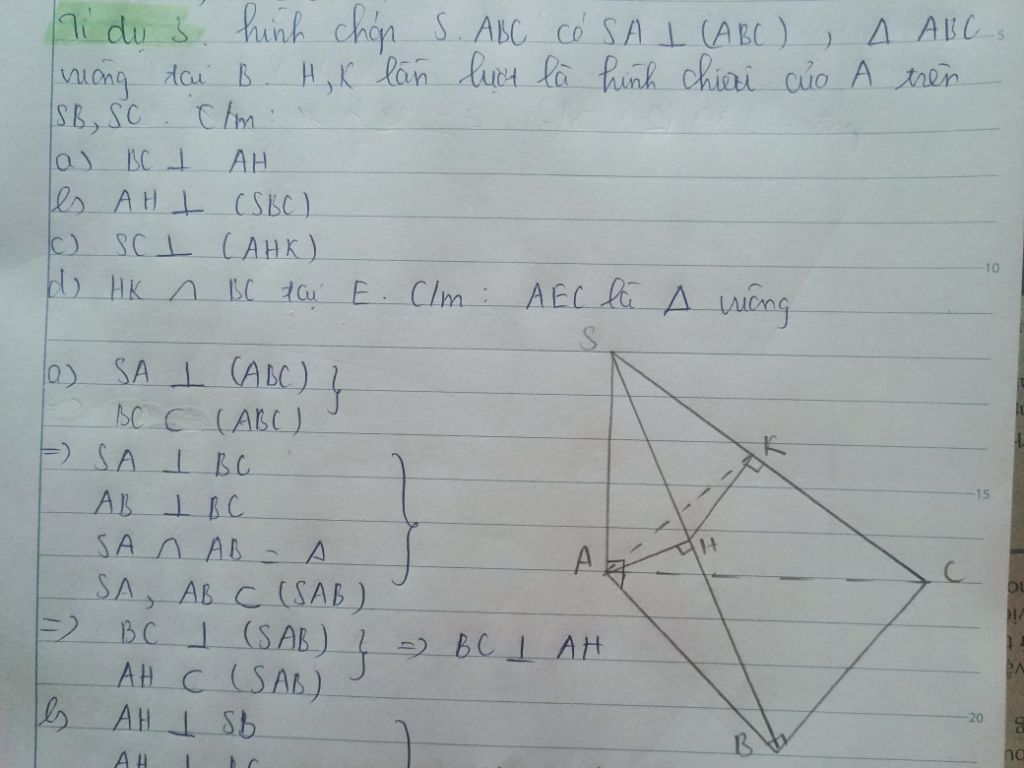 Ví dụ 3. hình chóp S. ABC có SA ⊥ (ABC), Δ ABC
vuông tại B. H, K lần lượt là hình chiếu của A trên
SB, SC. C/m:
a) BC ⊥ AH
b) AH ⊥ (SBC)
c) SC ⊥ (AHK)
d) HK ∩ BC tại E. C/m: AEC là Δ vuông
a) SA ⊥ (ABC) }
BC ⊂ (ABC)
=> SA ⊥ BC
AB ⊥ BC
SA ∩ AB = A
SA, AB ⊂ (SAB)
=> BC ⊥ (SAB) } => BC ⊥ AH
AH ⊂ (SAB)
b) AH ⊥ SB
AH ⊥ BC
S
K
H
A
C
B
5
10
15
20